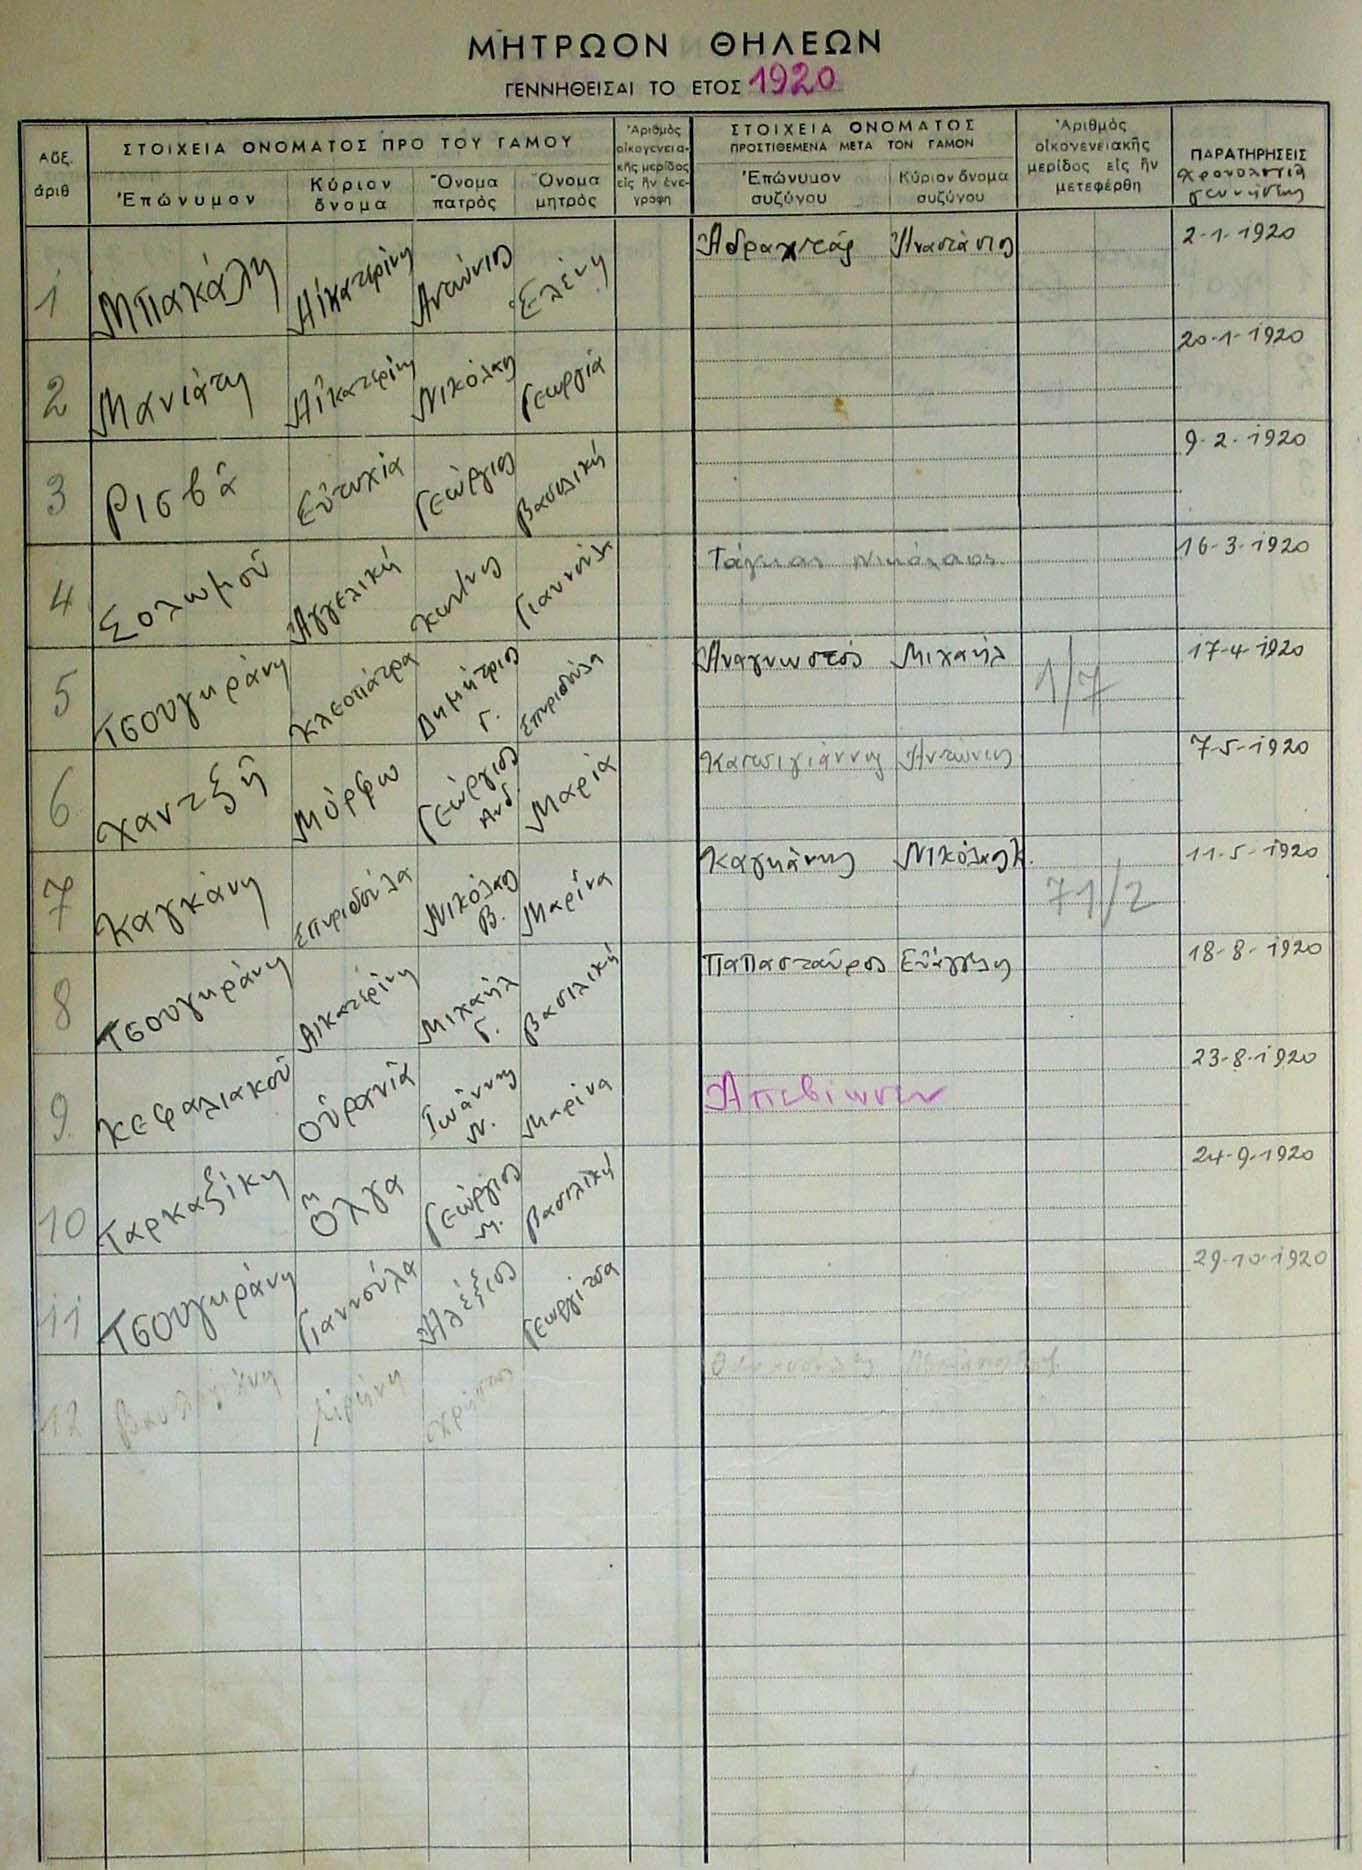 ΜΗΤΡΩΟΝ ΘΗΛΕΩΝ
ΓΕΝΝΗΘΕΙΣΑΙ ΤΟ ΕΤΟΣ 1920
Αὔξ. ἀριθ
ΣΤΟΙΧΕΙΑ ΟΝΟΜΑΤΟΣ ΠΡΟ ΤΟΥ ΓΑΜΟΥ
Ἐπώνυμον
Κύριον ὄνομα
Ὄνομα πατρός
Ὄνομα μητρός
Ἀριθμὸς οἰκογενειακῆς μερίδος εἰς ἣν ἐνεγράφη
ΣΤΟΙΧΕΙΑ ΟΝΟΜΑΤΟΣ
ΠΡΟΣΤΙΘΕΜΕΝΑ ΜΕΤΑ ΤΟΝ ΓΑΜΟΝ
Ἐπώνυμον συζύγου
Κύριον ὄνομα συζύγου
Ἀριθμὸς οἰκογενειακῆς μερίδος εἰς ἣν μετεφέρθη
ΠΑΡΑΤΗΡΗΣΕΙΣ
χρονολογία γεννήσεως
1 Μπακάλη Αἰκατερίνη Ἀντώνιος Ἑλένη Ἀναστάσιος 2-1-1920
2 Μανιάτη Αἰκατερίνη Νικόλαος Γεωργία 20-1-1920
3 Ρισβᾶ Εὐτυχία Γεώργιος Βασιλική 9-2-1920
4 Σολωμοῦ Ἀγγελική Κων/νος Γιαννούλα Νικόλαος 16-3-1920
5 Τσουγκράνη Κλεοπάτρα Δημήτριος Γ. Σπυριδούλα Ἀναγνωστός Μιχαήλ 1/7 17-4-1920
6 Χαντζῆ Μόρφω Γεώργιος Ἀνδ. Μαρία Κατσιγιάννης Ἀντώνιος 7-5-1920
7 Καγκάνη Σπυριδούλα Νικόλαος Β. Μαρίνα Καγκάνης Νικόλαος Κ. 71/2 11-5-1920
8 Τσουγκράνη Αἰκατερίνη Μιχαήλ Γ. Βασιλική Παπασταῦρος Εὐάγγελος 18-8-1920
9 Κεφαλιακοῦ Οὐρανία Ἰωάννης Ν. Μαρίνα Ἀπεβίωσεν 23-8-1920
10 Ταρκαζίκη Ὄλγα Γεώργιος Μ. Βασιλική 24-9-1920
11 Τσουγκράνη Γιαννούλα Ἀλέξιος Γεωργίτσα 29-10-1920
12 Εἰρήνη Χρῆστος